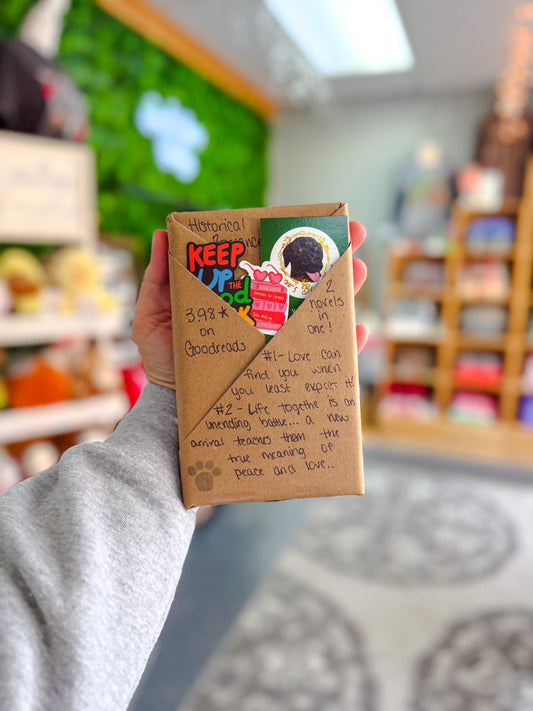 Historical
Romance
KEEP
UP
THE
3.93* on
Goodreads
2
novels
in
one!
#1 - Love can
find you when
you least expect it!
#2 - Life together is an
unending battle... a new
arrival teaches them the
true meaning of
peace and love..